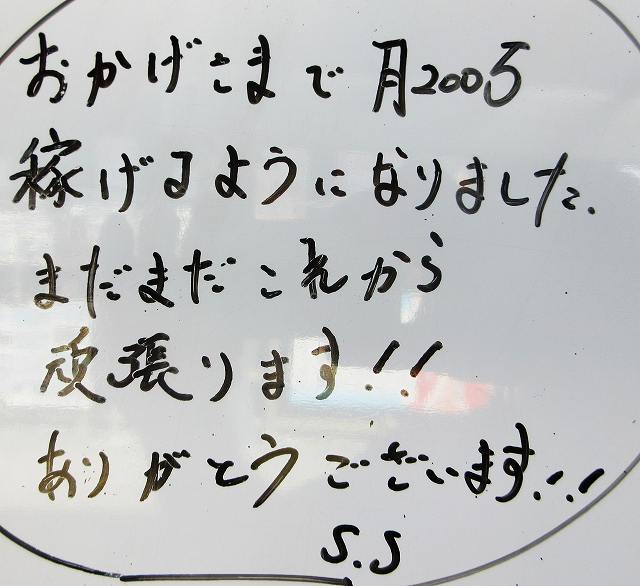 おかげさまで月200万
稼げるようになりました.
まだまだこれから
頑張ります!!
ありがとうございます!!
S.S